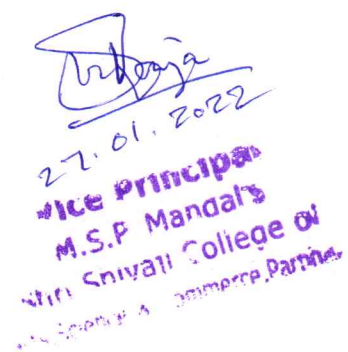 27.01.2022
Vice Principal
M.S.P Mandal's
Shri Shivaji College of
Commerce, Parbhani